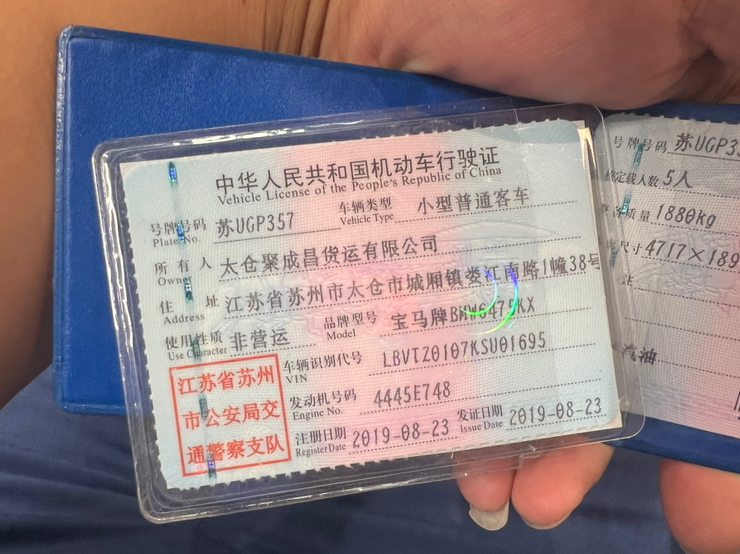 中华人民共和国机动车行驶证
Vehicle License of the People's Republic of China
号牌号码 苏UGP357 车辆类型 小型普通客车
Plate No. Vehicle Type
所有人 太仓聚成昌货运有限公司
Owner
住址 江苏省苏州市太仓市城厢镇娄江南路1幢38号
Address
使用性质 非营运 品牌型号 宝马牌BMW6475KX
Use Character Model
车辆识别代号 LBVTZ0107KSU01695
VIN
发动机号码 4445E748
Engine No.
注册日期 2019-08-23 发证日期 2019-08-23
Register Date Issue Date
江苏省苏州
市公安局交
通警察支队
号牌号码 苏UGP35
定载人数 5人
质量 1880kg
尺寸 4717×189
注
汽油